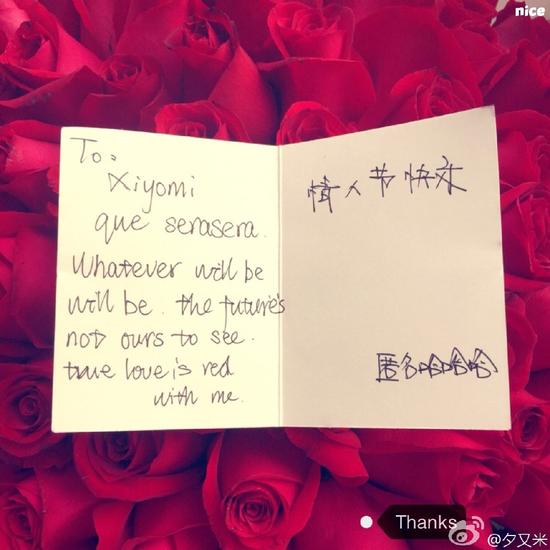 nice
To:
Xiyomi
que serasera.
Whatever will be
will be. the future's
not ours to see.
true love is red
with me.
情人节快乐
匿名哈哈哈
Thanks
@夕又米